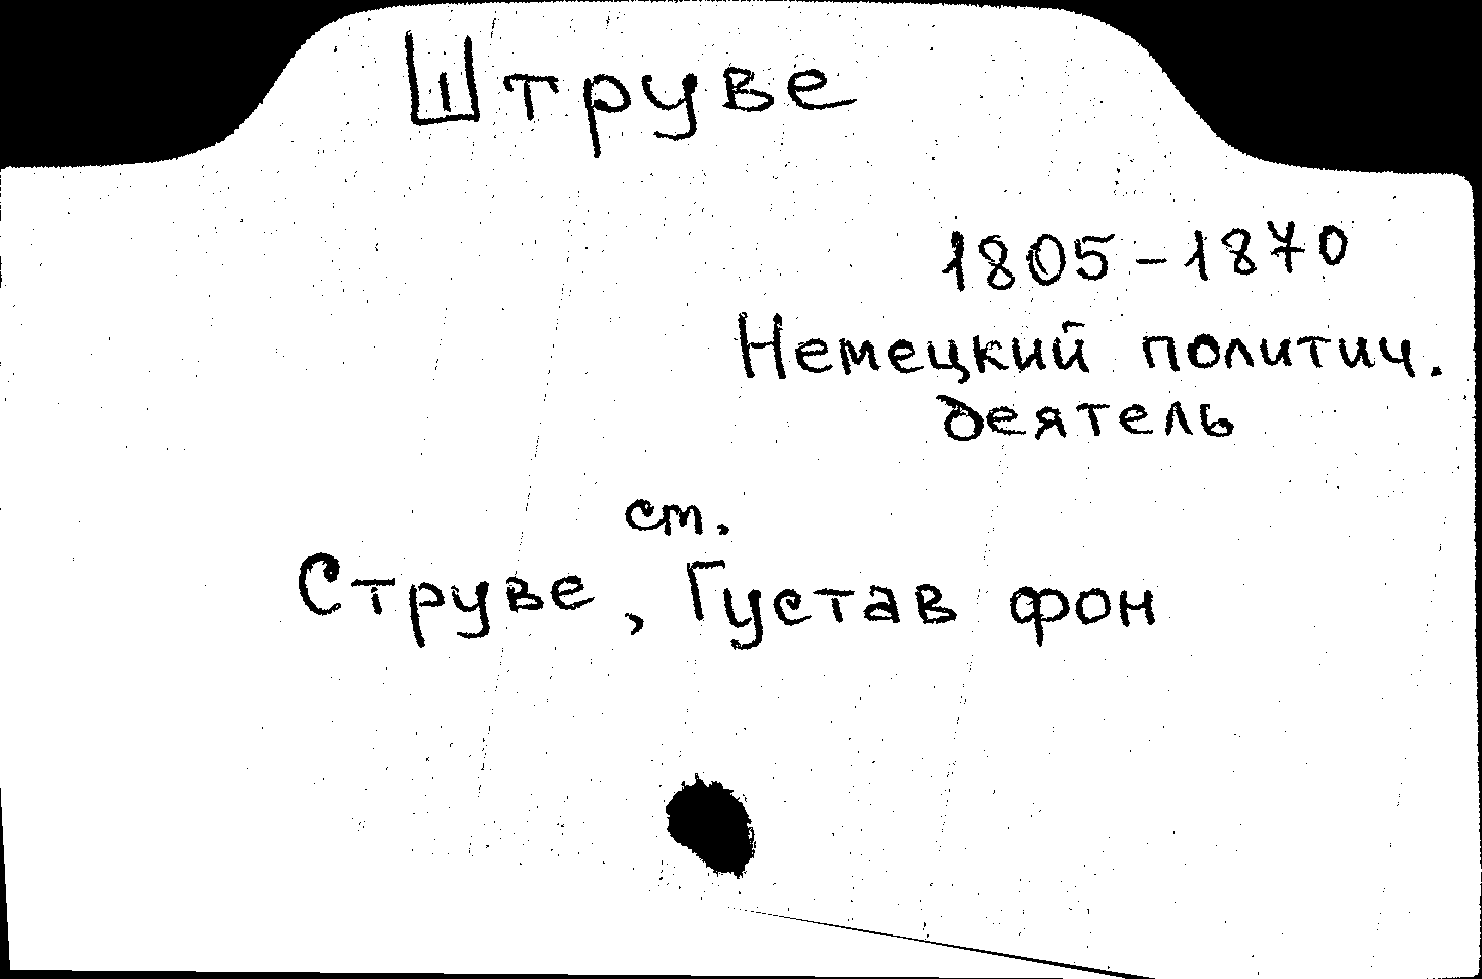 Штруве
1805-1870
Немецкий политич.
деятель
ст.
Струве, Густав фон